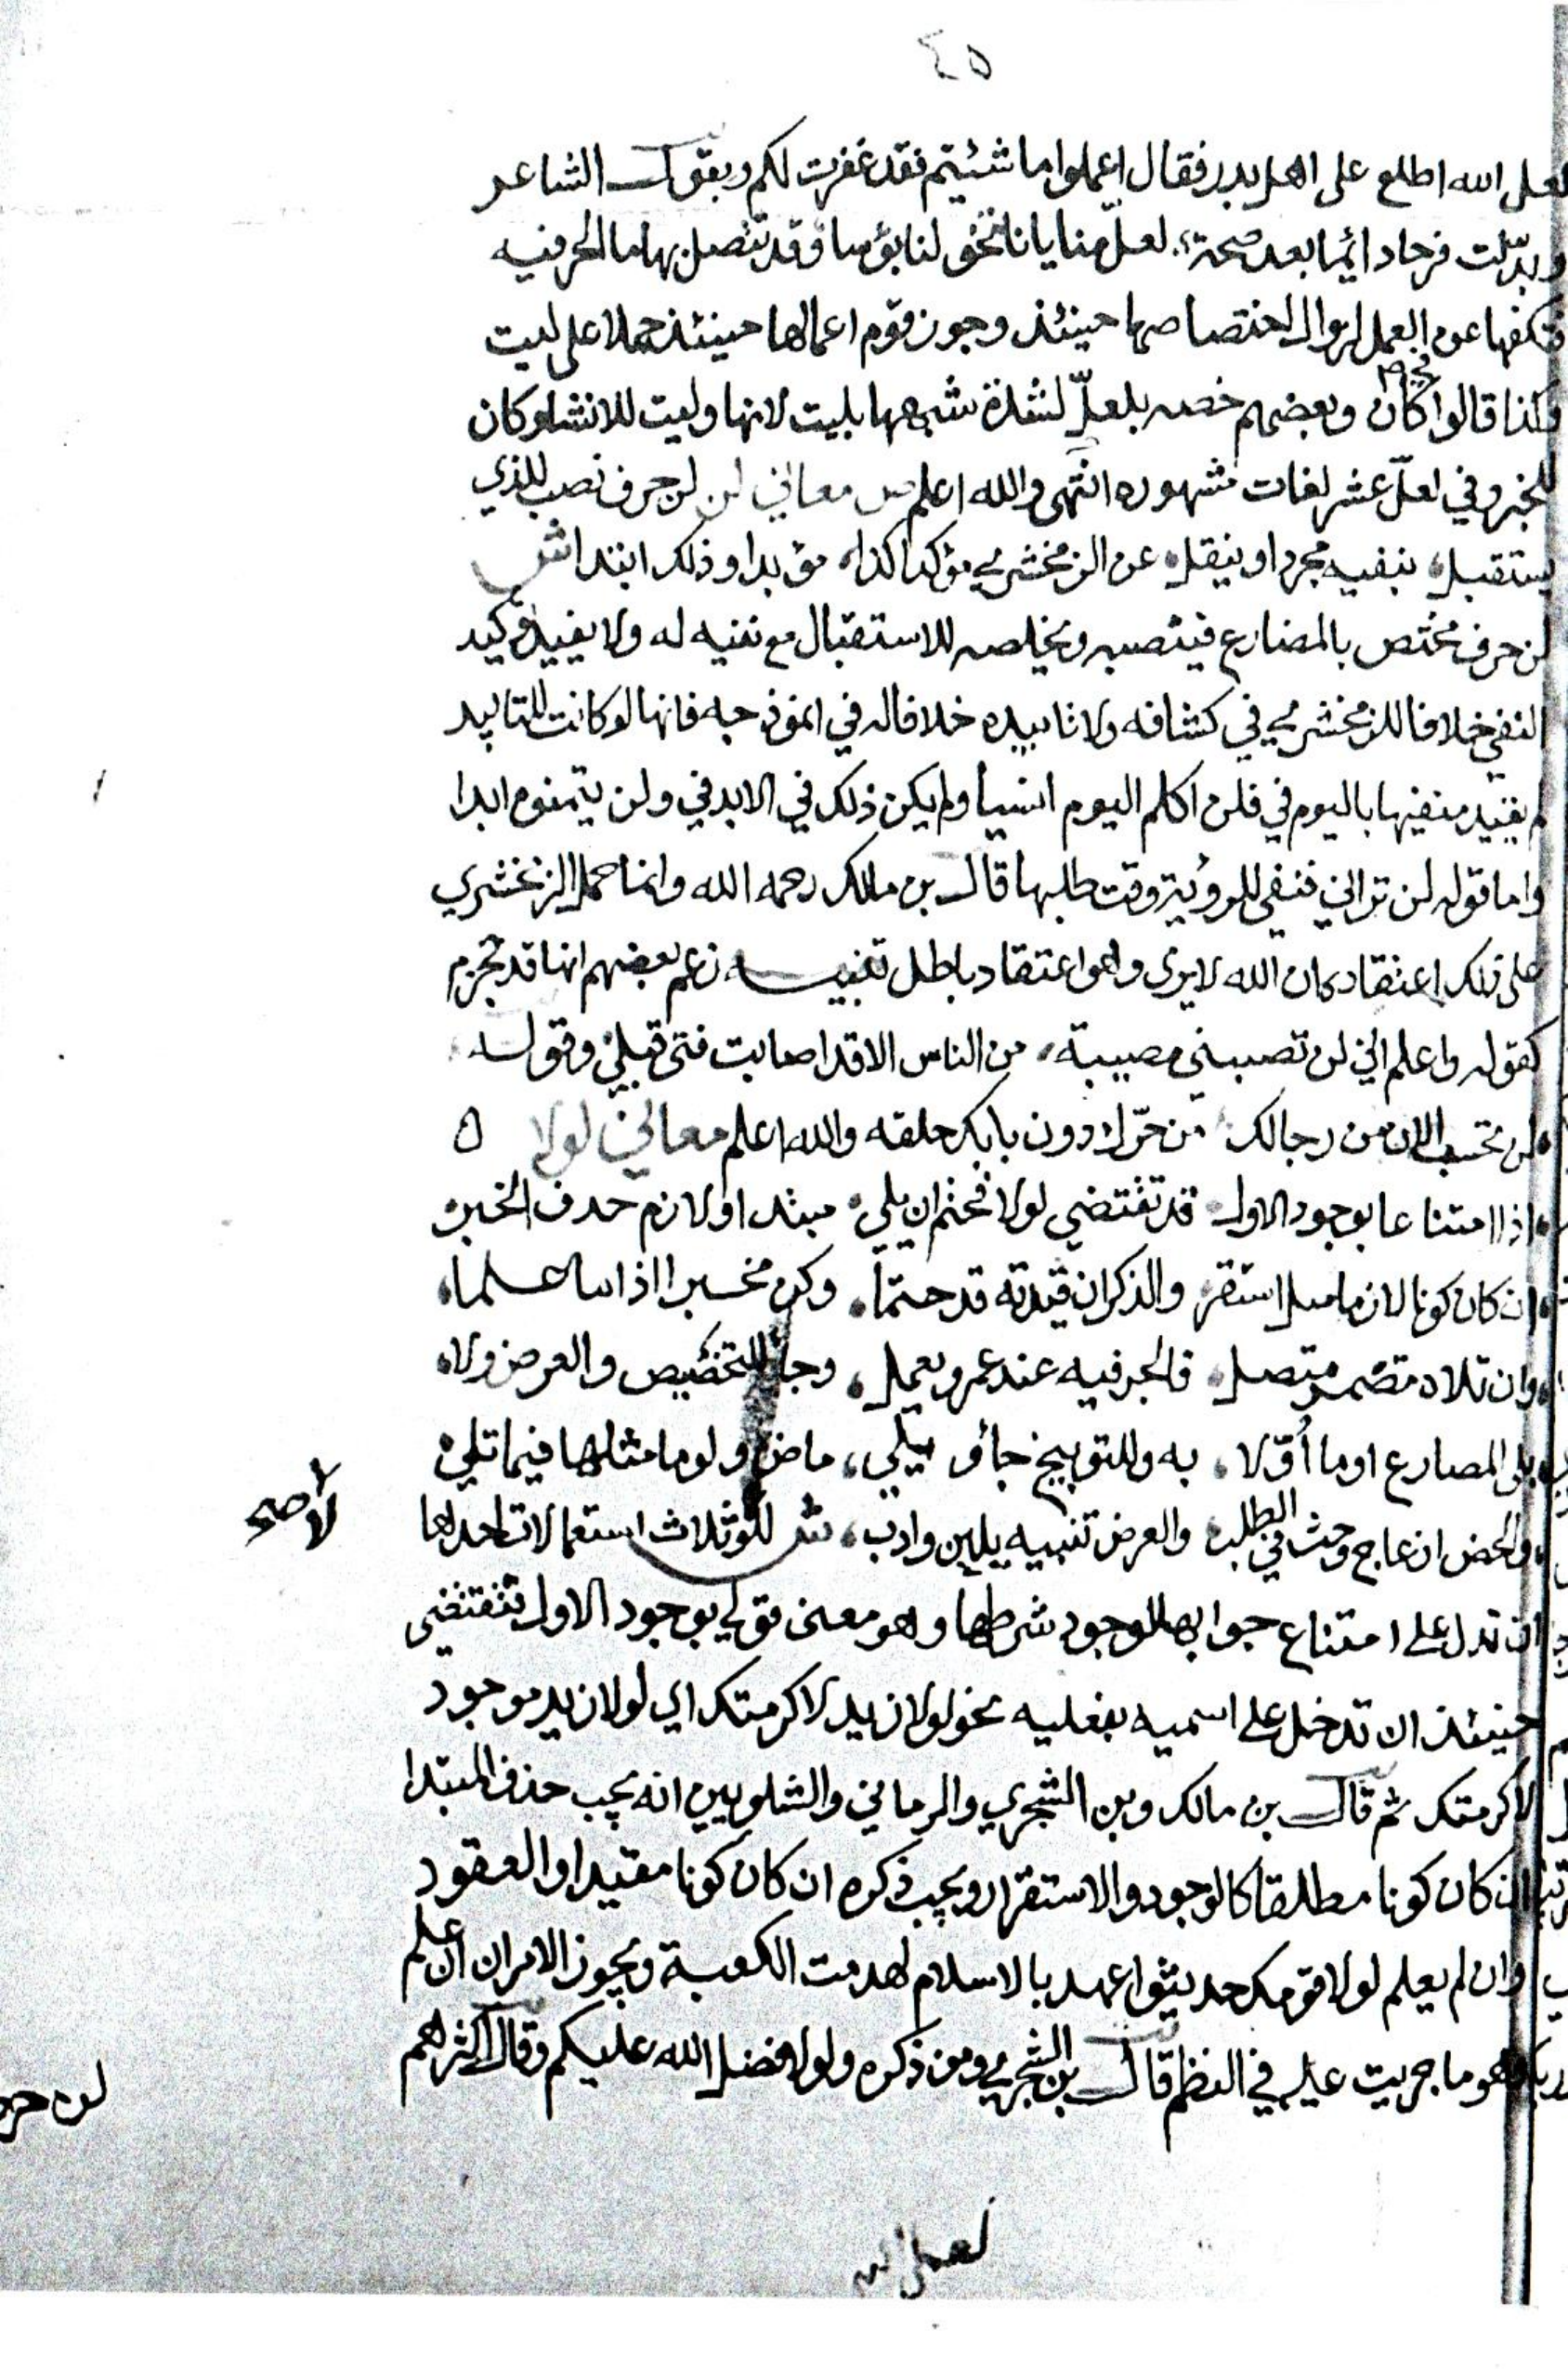 ٤٥
لعل الله اطلع على اهل بدر فقال اعملوا ما شئيتم فقد غفرت لكم وبقول الشاعر
وبدّلت قرحا دائما بعد صحة لعلّ منايانا تحولن ابؤسا وقد تتصل بها ما الحرفيه
فتكفها عن العمل لزوال اختصاصها حينئذ وجوز قوم اعمالها حينئذ حملا على ليت
وكذا قالوا كان وبعضهم خصه بلعلّ لشدة شبهها بليت لانها وليت للانشا وكان
للخبر وفي لعلّ عشر لغات مشهوره انتهى والله اعلم ص معاني لن لن حرف نصب للذي
يستقبل بنفيه مجردا وينقل عن الزمخشري مؤكدا كذا مؤبدا وذلك ابتدا ش
لن حرف مختص بالمضارع فينصبه ويخلصه للاستقبال مع نفيه له ولا يفيد توكيد
النفي خلافا للزمخشري في كشافه ولا تابيده خلافا له في انموذجه فانها لو كانت للتابيد
لم يقيد منفيها باليوم في فلن اكلم اليوم انسيا ولم يكن ذكر في الابد في ولن يتمنوه ابدا
واما قوله لن تراني فنفي للروية وقت طلبها قال بن مالك رحمه الله وانما حمل الزمخشري
على ذلك اعتقاد كان الله لا يرى وهو اعتقاد باطل تنبيه زعم بعضهم انها قد تجزم
كقوله واعلم اني لن تصبني مصيبة من الناس الا قد اصابت فتى قبلي وقوله
لن يخب الان من رجالك من حرّك دون بابك حلقه والله اعلم معاني لولا ٥
اذا امتناعا بوجود الاول قد تقتضي لولا فحتم ان يلي مبتدا ولازم حذف الخبر
ان كان كونا لازما مثل استقر والذكر ان قيدته قد حتما وكن مخيرا اذا ما علما
وان تلاه مضمر متصل فالجر فيه عند عمرو يعمل وجا للتحضيض والعرض ولا
يلي المصارع او ما أُوّلا به وللتوبيخ جا ويلي ماض ولوما مثلها فيما تلي
والحض ازعاج وحث في الطلب والعرض تنبيه بلين وادب ش للولا ثلاث استعمالات احدها
لا صح
ان تدل على امتناع جوابها لوجود شرطها وهو معنى قولي بوجود الاول تقتضي
حينئذ ان تدخل على اسميه بفعليه نحو لولا زيد لاكرمتك اي لولا زيد موجود
لاكرمتك ثم قال بن مالك وبن الشجري والرماني والشلوبين انه يجب حذف المبتدا
ان كان كونا مطلقا كالوجود والاستقرار ويجب ذكره ان كان كونا مقيدا والعقود
وان لم يعلم لولا قومك حديثوا عهد بالاسلام لهدمت الكعبة ويجوز الامران ان علم
وهو ما جريت عليه في النظم قال بن الشجري ومن ذكره ولولا فضل الله عليكم وقال اكثرهم